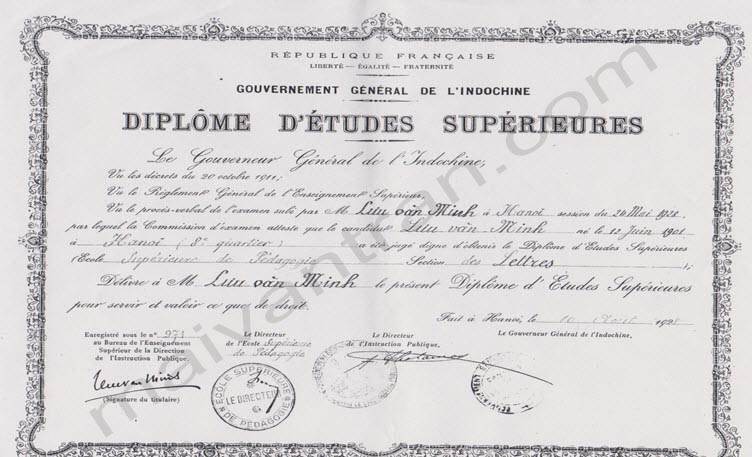 RÉPUBLIQUE FRANÇAISE
LIBERTÉ — ÉGALITÉ — FRATERNITÉ
GOUVERNEMENT GÉNÉRAL DE L'INDOCHINE
DIPLÔME D'ÉTUDES SUPÉRIEURES
Le Gouverneur Général de l'Indochine,
Vu les décrets du 20 octobre 1911;
Vu le Règlement Général de l'Enseignement Supérieur,
Vu le procès-verbal de l'examen subi par M. Lưu văn Minh à Hanoi session du 24 Mai 1928,
par lequel la Commission d'examen atteste que le candidat Lưu văn Minh né le 12 Juin 1901
à Hanoi (8e quartier) a été jugé digne d'obtenir le Diplôme d'Etudes Supérieures
(Ecole Supérieure de Pédagogie Section des Lettres);
Délivre à M. Lưu văn Minh le présent Diplôme d'Etudes Supérieures
pour servir et valoir ce que de droit.
Fait à Hanoi, le 1928
Enregistré sous le n°
au Bureau de l'Enseignement
Supérieur de la Direction
de l'Instruction Publique.
(Signature du titulaire)
Le Directeur
de l'Ecole Supérieure
de Pédagogie
ECOLE SUPÉRIEURE
LE DIRECTEUR
DE PÉDAGOGIE
Le Directeur
de l'Instruction Publique.
Le Gouverneur Général de l'Indochine,
maivantran.com